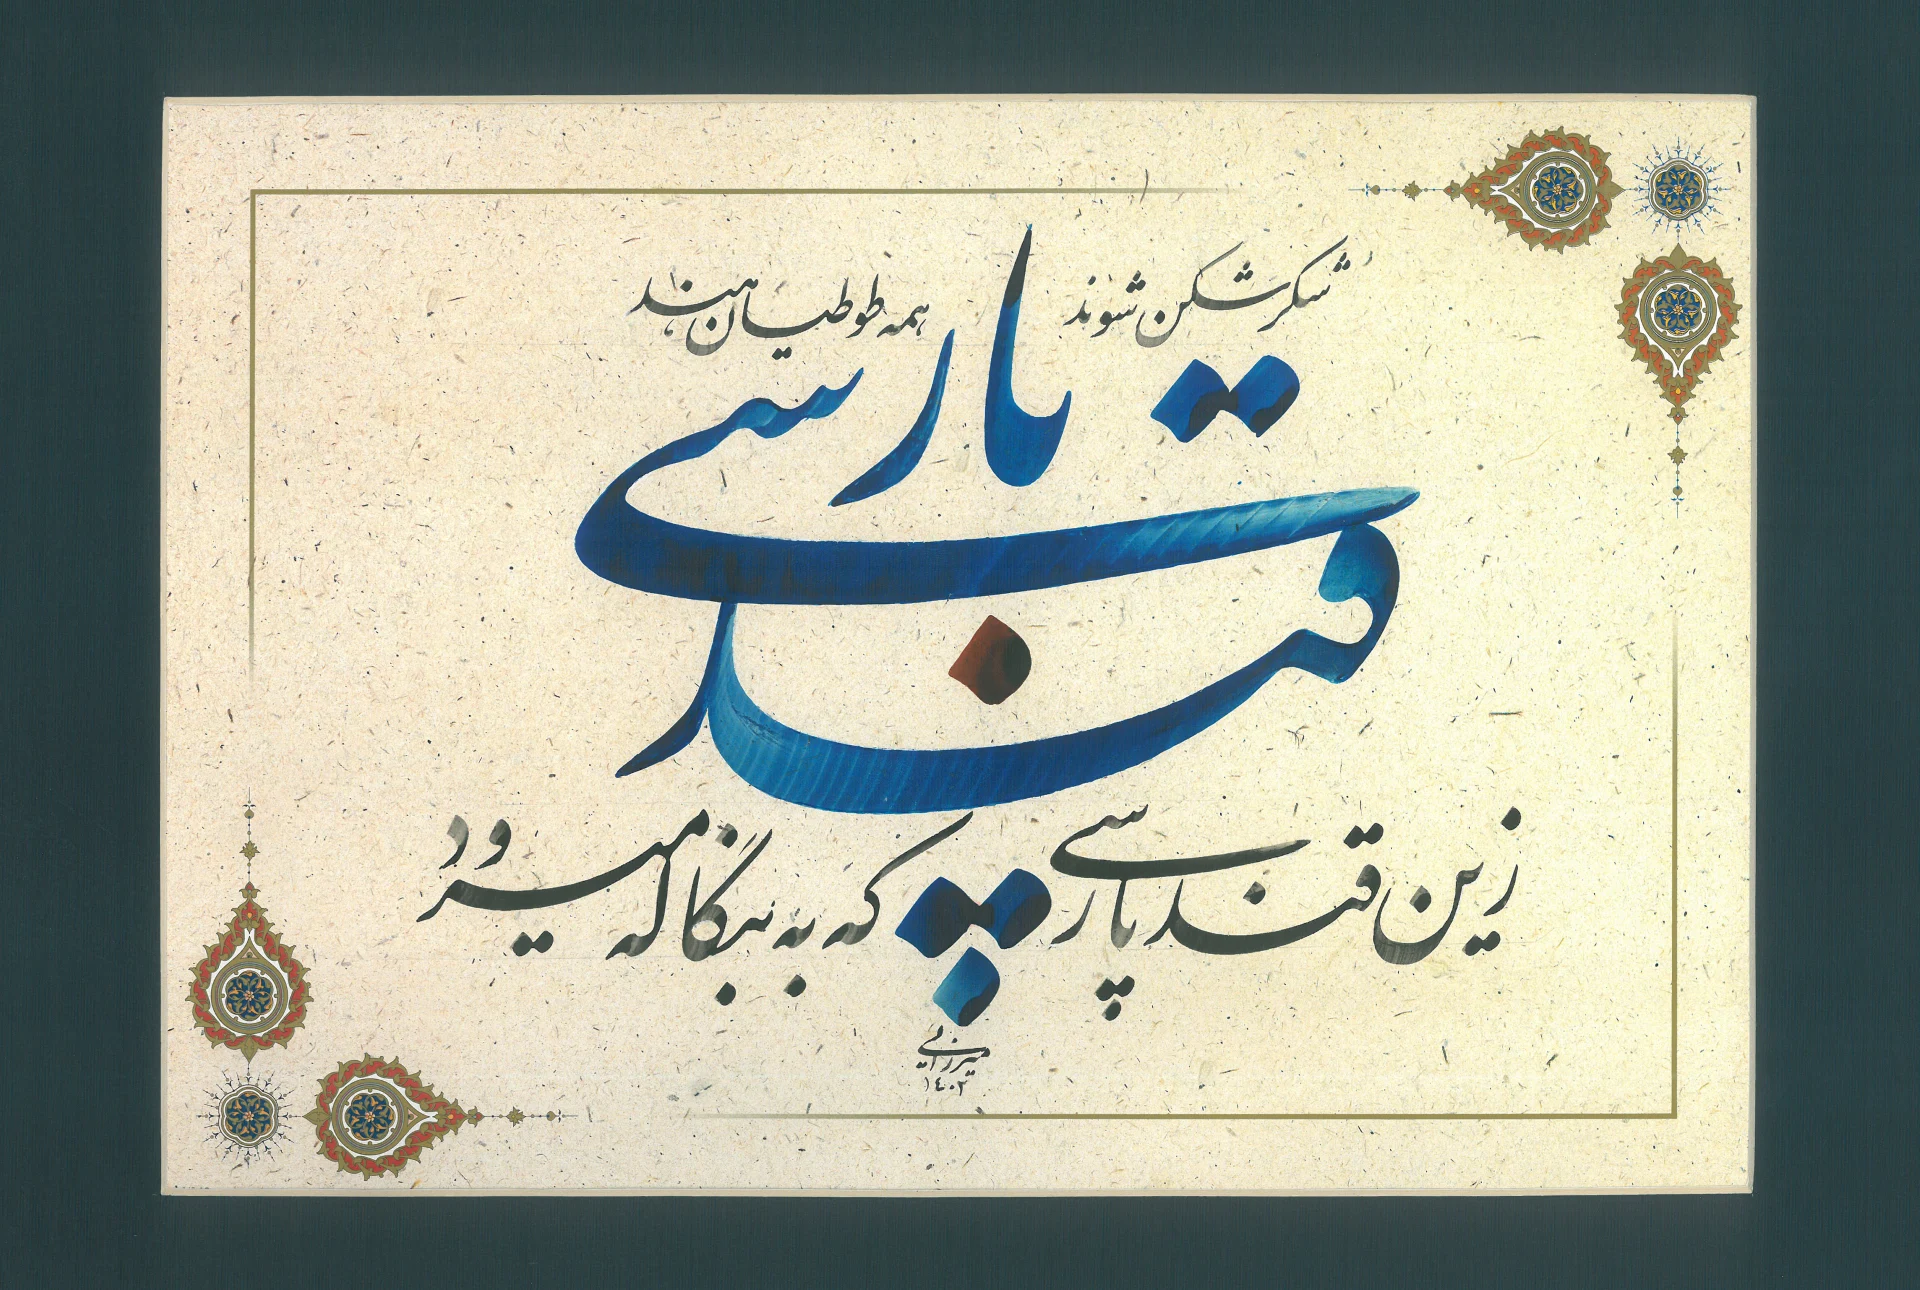 شکرشکن شوند همه طوطیان هند
قند پارسی
زین قند پارسی که به بنگاله میرود
میرزایی
۱۴۰۲